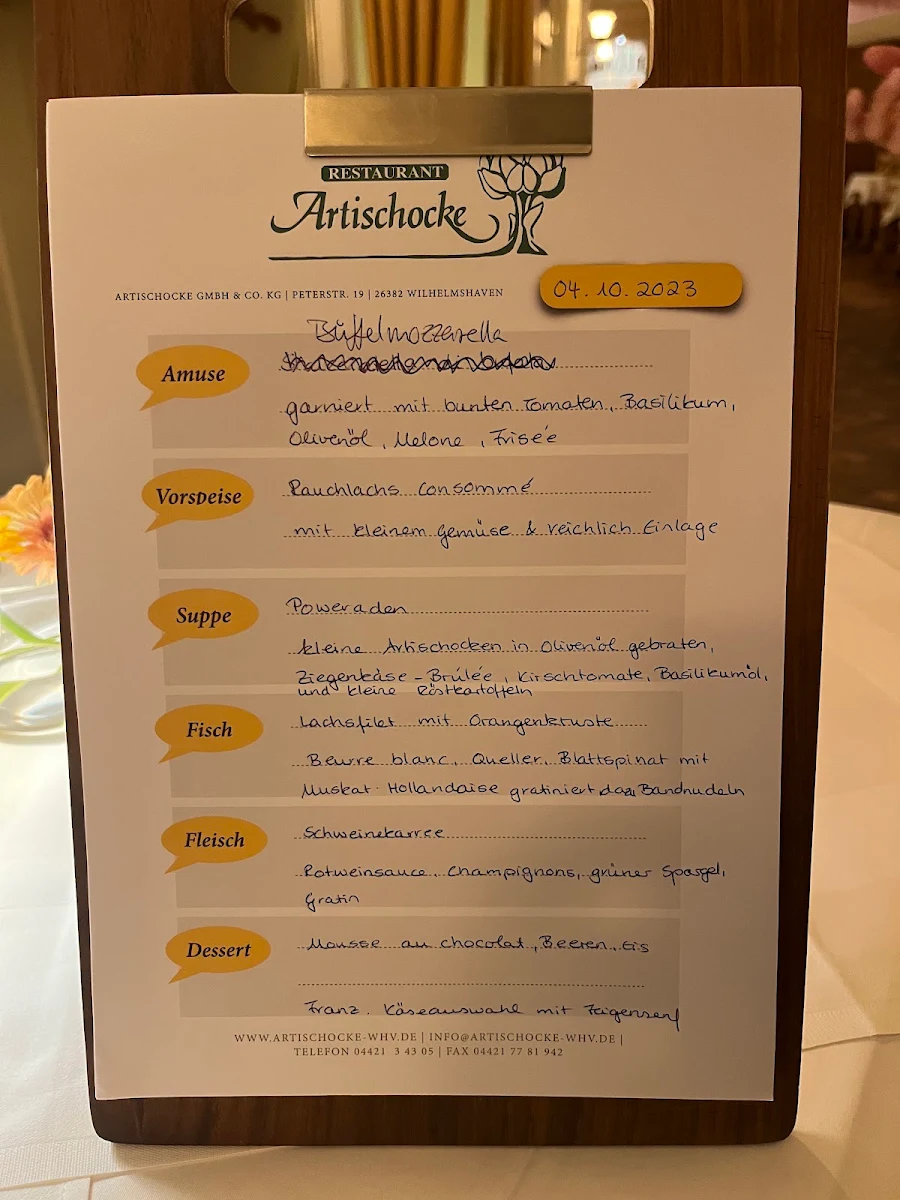 RESTAURANT
Artischocke
ARTISCHOCKE GMBH & CO. KG | PETERSTR. 19 | 26382 WILHELMSHAVEN
04.10.2023
Büffelmozzarella
Amuse
garniert mit bunten Tomaten, Basilikum,
Olivenöl, Melone, Friseé
Vorspeise
Rauchlachs Consommé
mit kleinem Gemüse & reichlich Einlage
Suppe
Poweraden
kleine Artischocken in Olivenöl gebraten,
Ziegenkäse - Brûlée, Kirschtomate, Basilikumöl,
und kleine Röstkartoffeln
Fisch
Lachsfilet mit Orangenkruste
Beurre blanc, Queller, Blattspinat mit
Muskat-Hollandaise gratiniert dazu Bandnudeln
Fleisch
Schweinekarree
Rotweinsauce, Champignons, grüner Spargel,
Gratin
Dessert
Mousse au chocolat, Beeren, Eis
Franz. Käseauswahl mit Feigensenf
WWW.ARTISCHOCKE-WHV.DE | INFO@ARTISCHOCKE-WHV.DE |
TELEFON 04421 3 43 05 | FAX 04421 77 81 942